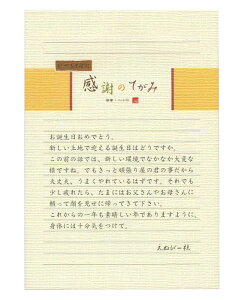 感謝のてがみ
お誕生日おめでとう。
新しい土地で迎える誕生日はどうですか。
この前の話では、新しい環境でなかなか大変な
様ですね。でもきっと頑張り屋の君の事だから
大丈夫、うまくやれているはずです。それでも
少し疲れたら、たまにはお父さんやお母さんに
頼って顔を見せに帰ってきて下さい。
これからの一年も素晴しい年でありますように、
身体には十分気をつけて。
えぬびー社